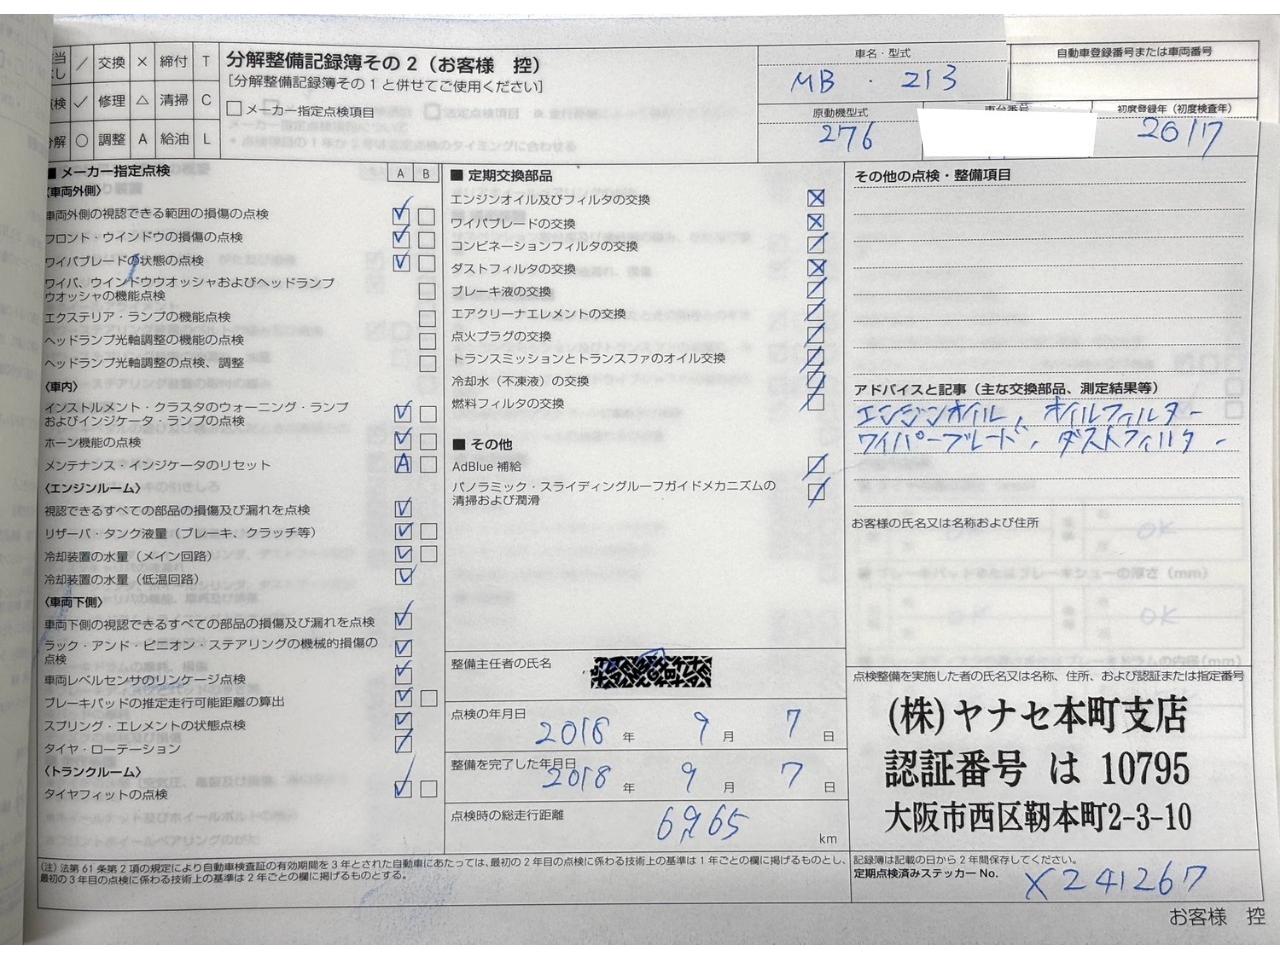 交換 × 締付 T
点検 ✓ 修理 △ 清掃 C
分解 ○ 調整 A 給油 L
分解整備記録簿その2（お客様　控）
［分解整備記録簿その1と併せてご使用ください］
□ メーカー指定点検項目
車名・型式
MB・213
自動車登録番号または車両番号
原動機型式
276
車台番号
初度登録年（初度検査年）
2017
■ メーカー指定点検 A B
〈車両外側〉
車両外側の視認できる範囲の損傷の点検
フロント・ウインドウの損傷の点検
ワイパブレードの状態の点検
ワイパ、ウインドウウオッシャおよびヘッドランプ
ウオッシャの機能点検
エクステリア・ランプの機能点検
ヘッドランプ光軸調整の機能の点検
ヘッドランプ光軸調整の点検、調整
〈車内〉
インストルメント・クラスタのウォーニング・ランプ
およびインジケータ・ランプの点検
ホーン機能の点検
メンテナンス・インジケータのリセット A
〈エンジンルーム〉
視認できるすべての部品の損傷及び漏れを点検
リザーバ・タンク液量（ブレーキ、クラッチ等）
冷却装置の水量（メイン回路）
冷却装置の水量（低温回路）
〈車両下側〉
車両下側の視認できるすべての部品の損傷及び漏れを点検
ラック・アンド・ピニオン・ステアリングの機械的損傷の
点検
車両レベルセンサのリンケージ点検
ブレーキパッドの推定走行可能距離の算出
スプリング・エレメントの状態点検
タイヤ・ローテーション
〈トランクルーム〉
タイヤフィットの点検
■ 定期交換部品
エンジンオイル及びフィルタの交換
ワイパブレードの交換
コンビネーションフィルタの交換
ダストフィルタの交換
ブレーキ液の交換
エアクリーナエレメントの交換
点火プラグの交換
トランスミッションとトランスファのオイル交換
冷却水（不凍液）の交換
燃料フィルタの交換
■ その他
AdBlue 補給
パノラミック・スライディングルーフガイドメカニズムの
清掃および潤滑
整備主任者の氏名
点検の年月日
2018 年 9 月 7 日
整備を完了した年月日
2018 年 9 月 7 日
点検時の総走行距離
6965 km
その他の点検・整備項目
アドバイスと記事（主な交換部品、測定結果等）
エンジンオイル、オイルフィルター
ワイパーブレード、ダストフィルター
お客様の氏名又は名称および住所
点検整備を実施した者の氏名又は名称、住所、および認証または指定番号
(株)ヤナセ本町支店
認証番号 は 10795
大阪市西区靭本町2-3-10
（注）法第61条第2項の規定により自動車検査証の有効期間を3年とされた自動車にあたっては、最初の2年目の点検に係わる技術上の基準は1年ごとの欄に掲げるものとし、
最初の3年目の点検に係わる技術上の基準は2年ごとの欄に掲げるものとする。
記録簿は記載の日から2年間保存してください。
定期点検済みステッカー No. X241267
お客様　控